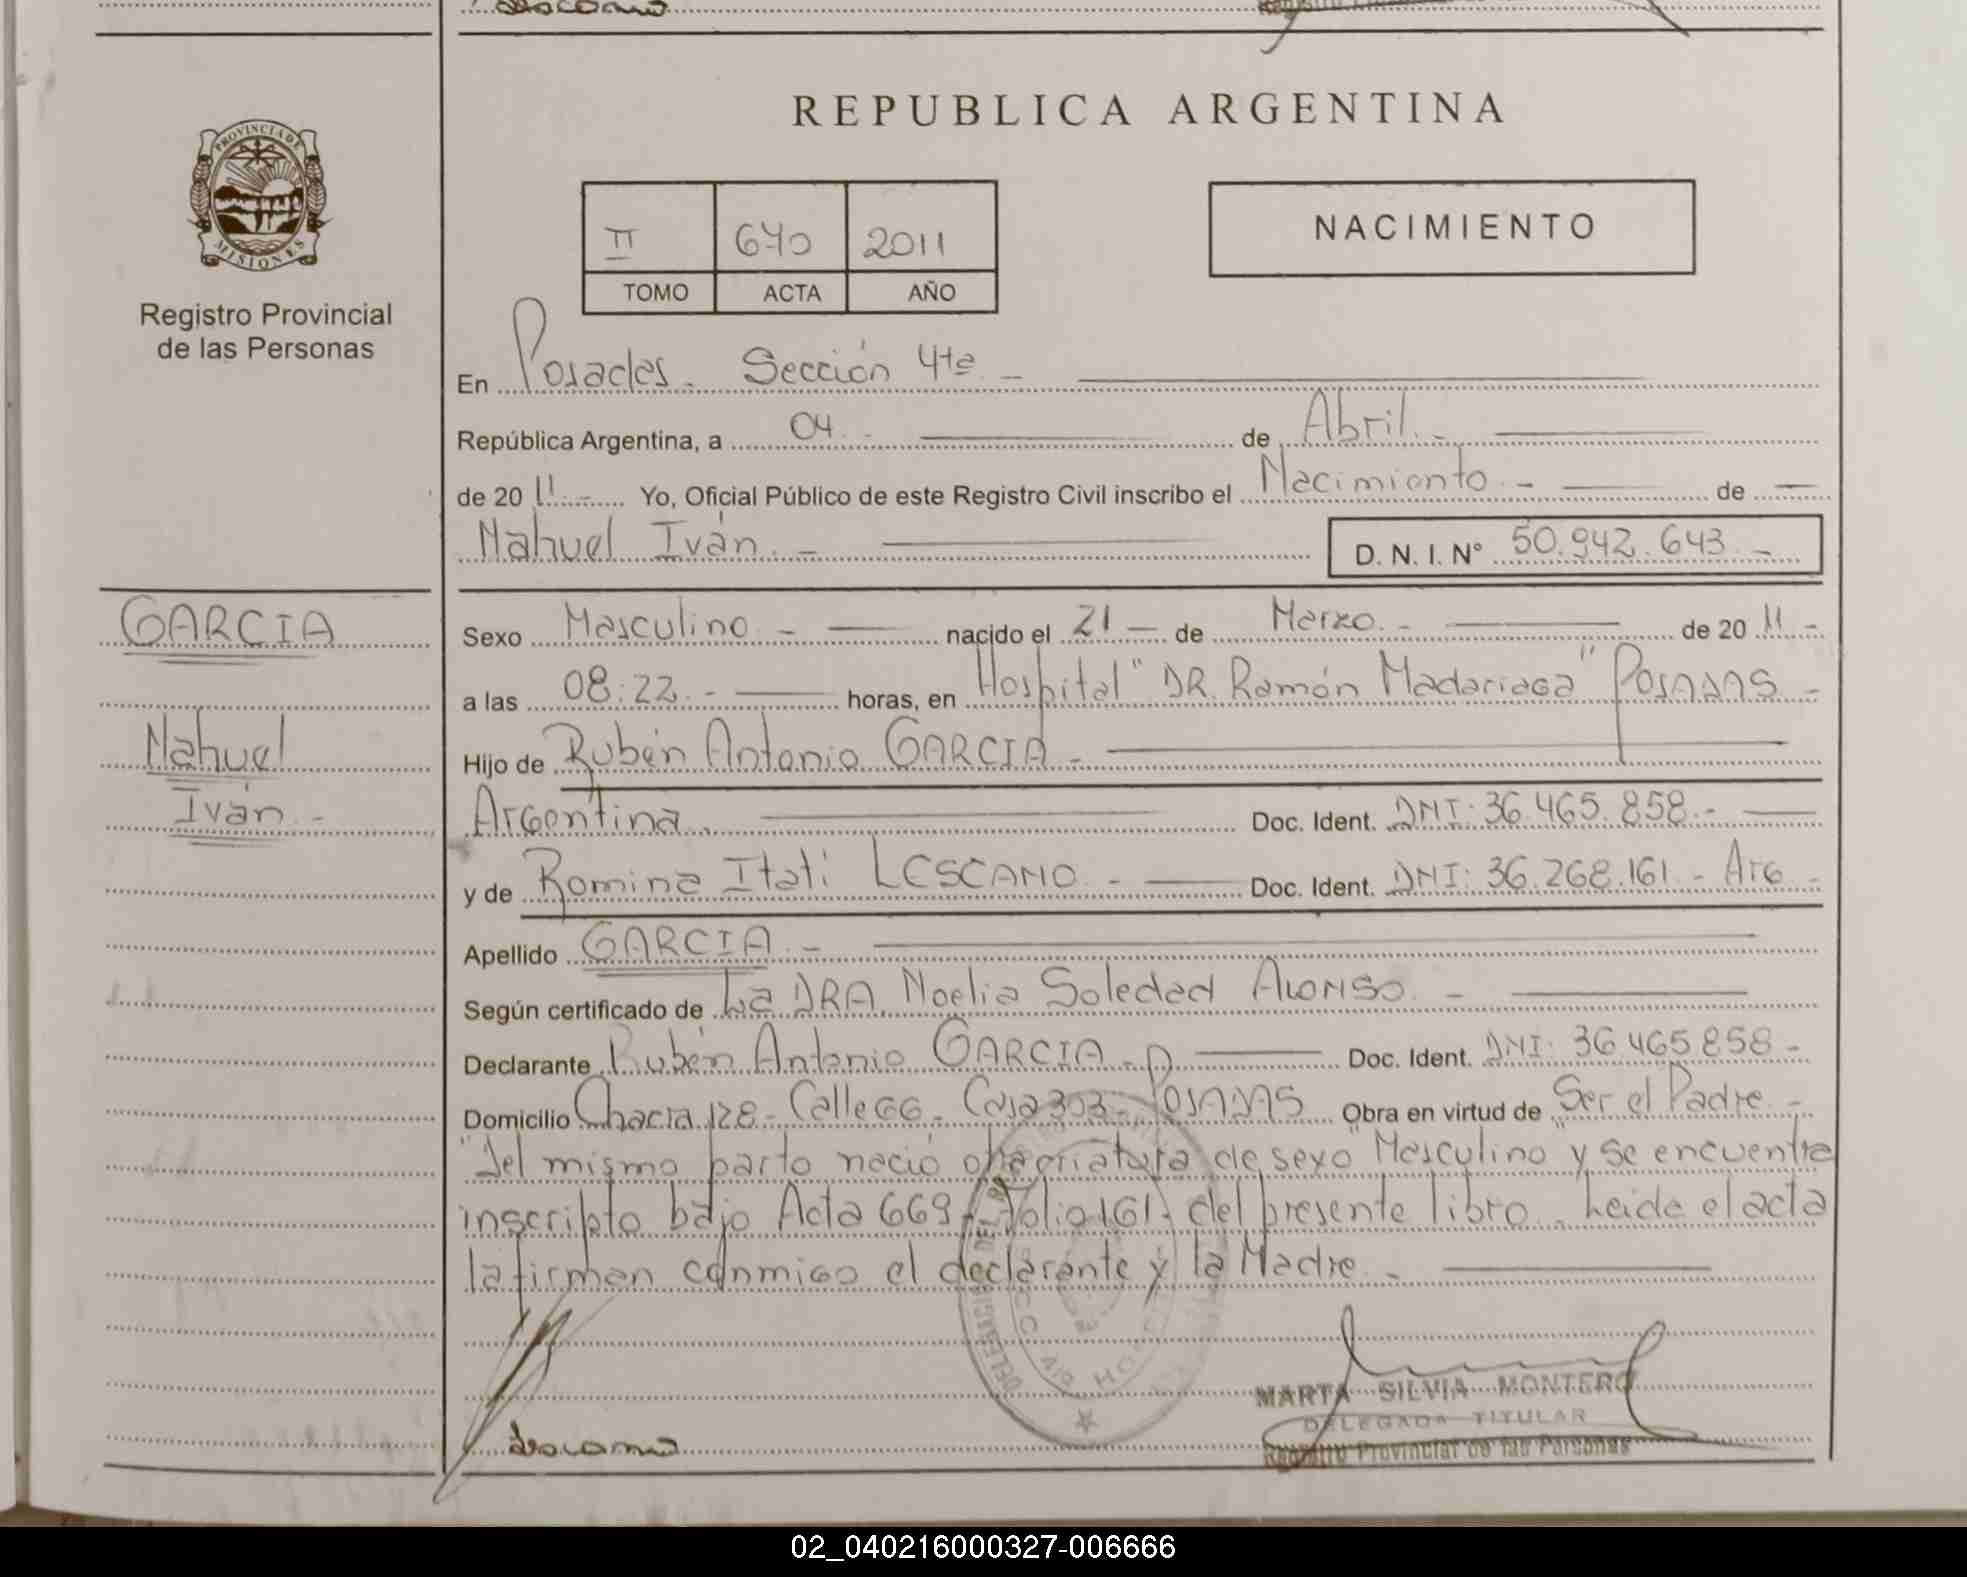 REPUBLICA ARGENTINA
PROVINCIA DE
MISIONES
Registro Provincial
de las Personas
II 670 2011
TOMO ACTA AÑO
NACIMIENTO
En Posadas. Sección 4ta -
República Argentina, a 04. - de Abril. -
de 20 11. - Yo, Oficial Público de este Registro Civil inscribo el Nacimiento. - de
Nahuel Iván. - D. N. I. N° 50.942.643. -
GARCIA
Nahuel
Iván. -
Sexo Masculino. - nacido el 21 de Marzo. - de 20 11 -
a las 08:22. - horas, en Hospital "DR. Ramón Madariaga" POSADAS -
Hijo de Rubén Antonio GARCIA -
Argentina. Doc. Ident. DNI: 36.465.858. -
y de Romina Itati LESCANO. - Doc. Ident. DNI: 36.268.161. - Arg -
Apellido GARCIA. -
Según certificado de La DRA. Noelia Soledad ALONSO. -
Declarante Rubén Antonio GARCIA - Doc. Ident. DNI: 36.465.858 -
Domicilio Chacra 128 - Calle 66 - Casa 303 - POSADAS Obra en virtud de Ser el Padre. -
"Del mismo parto nació otra criatura de sexo "Masculino" y se encuentra
inscripto bajo Acta 669 - Folio 161 - del presente libro. Leida el acta
la firman conmigo el declarante y la Madre. -
MARTA SILVIA MONTERO
DELEGADA TITULAR
Registro Provincial de las Personas
Lescano
02_040216000327-006666